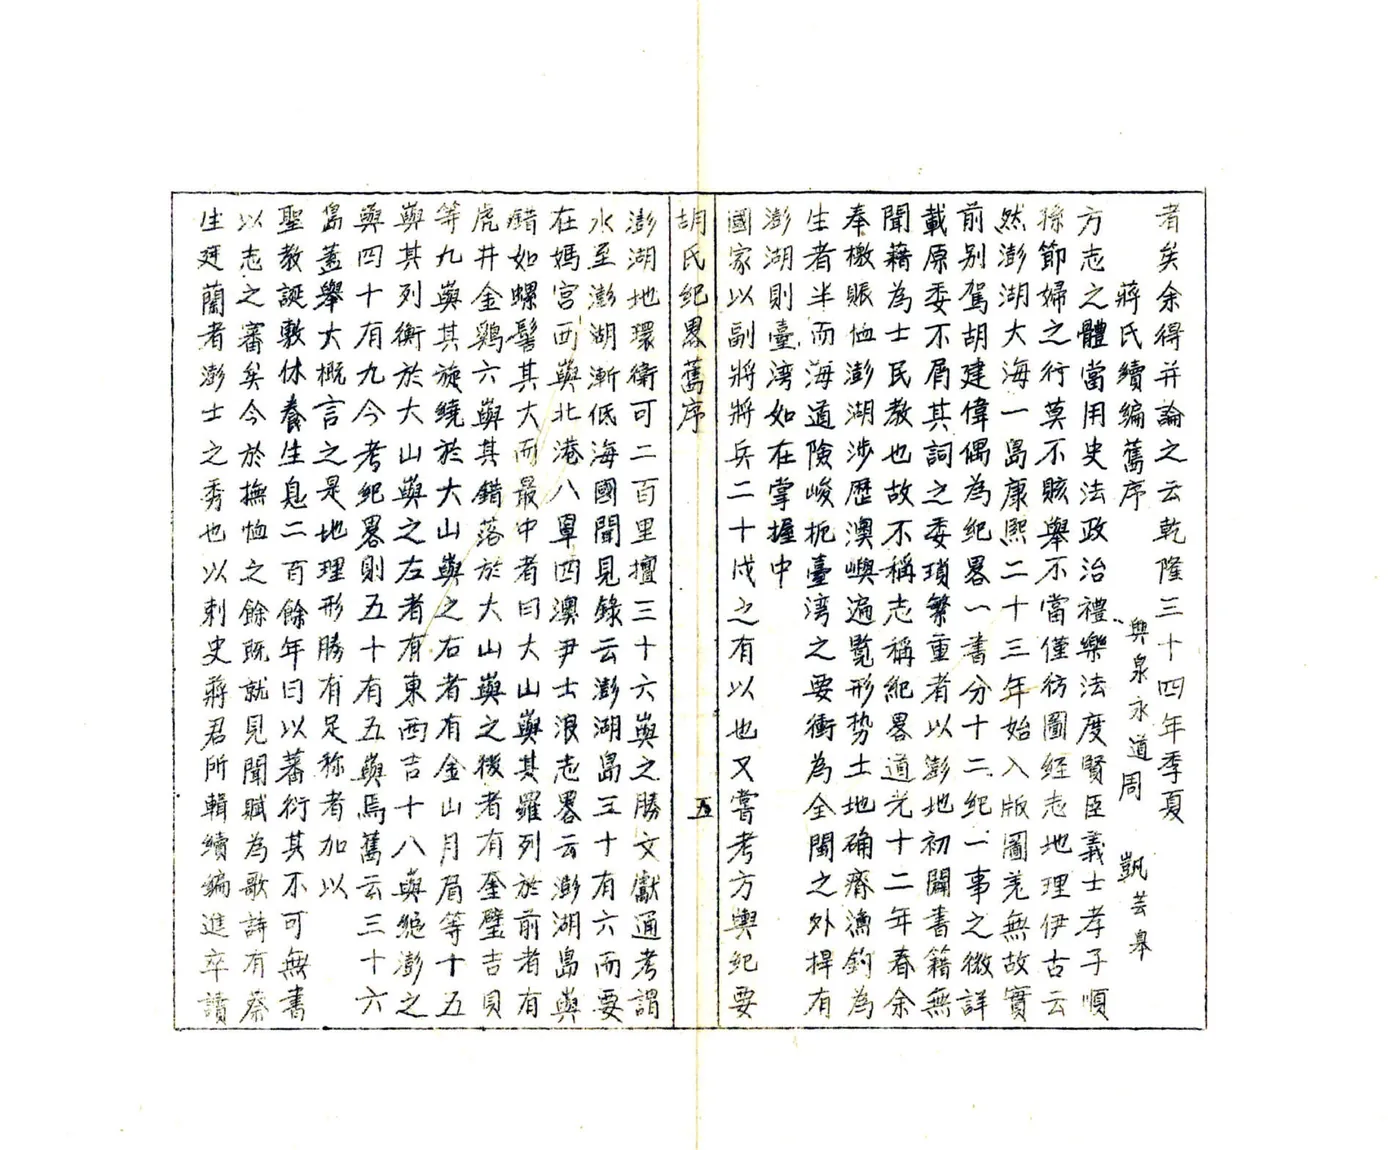 者矣余得并論之云乾隆三十四年季夏
蔣氏續編舊序
興泉永道周　凱芸皋
方志之體當用史法政治禮樂法度賢臣義士孝子順
孫節婦之行莫不賅舉不當僅彷圖經志地理伊古云
然澎湖大海一島康熙二十三年始入版圖羌無故實
前別駕胡建偉偶為紀畧一書分十二紀一事之微詳
載原委不屑其詞之委瑣繁重者以澎地初闢書籍無
聞藉為士民教也故不稱志稱紀畧道光十二年春余
奉檄賑恤澎湖涉歷澳嶼遍覽形势土地确瘠漁釣為
生者半而海道險峻扼臺湾之要衝為全閩之外捍有
澎湖則臺湾如在掌握中
國家以副將將兵二十戍之有以也又嘗考方輿紀要
胡氏紀畧舊序
五
澎湖地環衛可二百里擅三十六嶼之勝文獻通考謂
水至澎湖漸低海國聞見錄云澎湖島三十有六而要
在媽宮西嶼北港八罩四澳尹士俍志畧云澎湖島嶼
錯如螺髻其大而最中者曰大山嶼其羅列於前者有
虎井金鷄六嶼其錯落於大山嶼之後者有奎璧吉貝
等九嶼其旋繞於大山嶼之右者有金山月眉等十五
嶼其列衡於大山嶼之左者有東西吉十八嶼總澎之
嶼四十有九今考紀畧則五十有五嶼焉舊云三十六
島蓋舉大概言之是地理形勝有足称者加以
聖教誕敷休養生息二百餘年曰以蕃衍其不可無書
以志之審矣今於撫恤之餘既就見聞賦為歌詩有蔡
生廷蘭者澎士之秀也以刺史蔣君所輯續編進卒讀